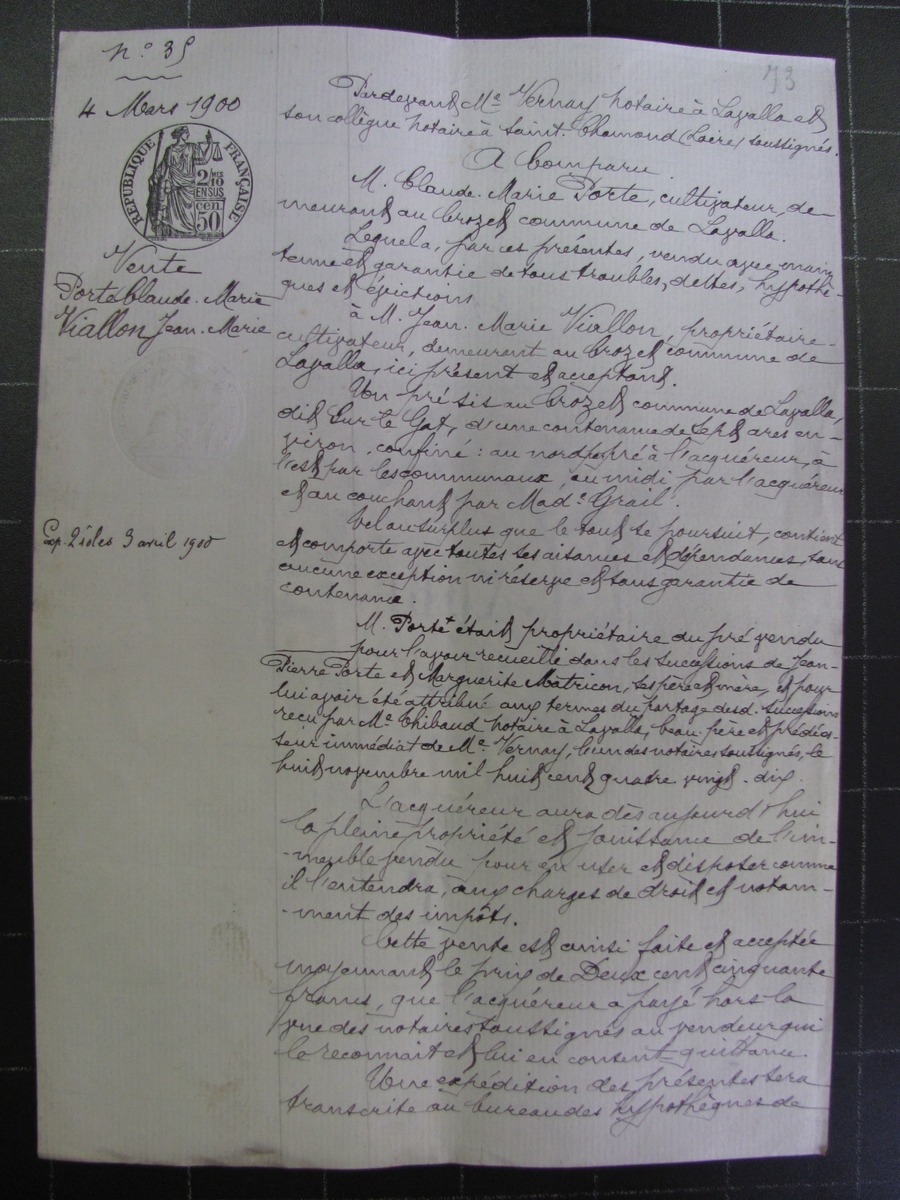 n.° 35
73
4 Mars 1900
RÉPUBLIQUE FRANÇAISE
2/10 MES
EN SUS
50 cen
Vente
Porte Claude-Marie
Viallon Jean-Marie
Exp. 2 rôles 3 avril 1900
Pardevant Me Vernay notaire à Lavalla et
son collègue notaire à Saint-Chamond (Loire) soussignés.
A Comparu
M. Claude-Marie Porte, cultivateur, de-
meurant au Crozet commune de Lavalla.
Lequel a, par ces présentes, vendu avec main
tenue et garantie de tous troubles, dettes, hypothè-
ques et évictions
à M. Jean-Marie Viallon, propriétaire-
cultivateur, demeurant au Crozet commune de
Lavalla, ici présent et acceptant.
Un pré sis au Crozet commune de Lavalla,
dit Sur le Gat, d'une contenance de Sept ares en-
viron, confiné : au nord pré à l'acquéreur, à
l'est par les communaux, au midi par l'acquéreur
et au couchant par Made Grail.
Tel au surplus que le tout se poursuit, contient
et comporte avec toutes ses aisances et dépendances, sans
aucune exception ni réserve et sans garantie de
contenance.
M. Porte était propriétaire du pré vendu
pour l'avoir recueilli dans les successions de Jean-
Pierre Porte et Marguerite Matricon, ses père et mère, et pour
lui avoir été attribué aux termes du partage desd. successions
reçu par Me Thibaud notaire à Lavalla, beau-père et prédéces-
seur immédiat de Me Vernay, l'un des notaires soussignés, le
huit novembre mil huit cent quatre vingt-dix.
L'acquéreur aura dès aujourd'hui
la pleine propriété et jouissance de l'im-
-meuble vendu pour en user et disposer comme
il l'entendra, aux charges de droit et notam-
-ment des impôts.
Cette vente est ainsi faite et acceptée
moyennant le prix de Deux cent cinquante
francs, que l'acquéreur a payé hors la
vue des notaires soussignés au vendeur qui
le reconnait et lui en consent quittance.
Une expédition des présentes sera
transcrite au bureau des hypothèques de